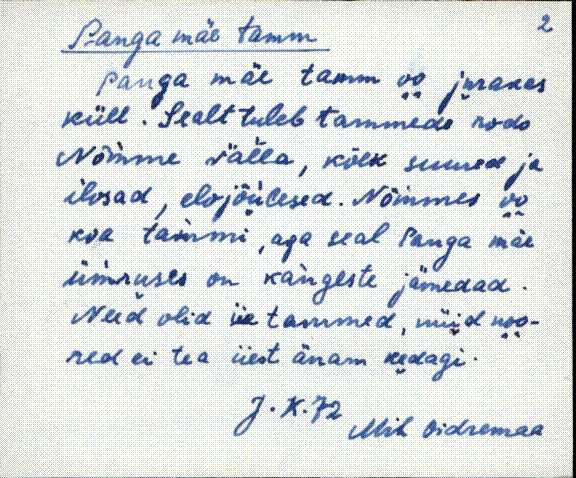 2
Panga mäe tamm
Panga mäe tamm oo jurakas
küll. Sealt tuleb tammede rodo
Nõmme välla, kõik suured ja
ilosad, elojõulesed. Nõmmes oo
koa tammi, aga seal Panga mäe
ümruses on kangeste jämedad.
Need olid iie tammed, nüid noo-
red ei tea iiest änam kedagi.
J. K. 72
Mih Oidremaa